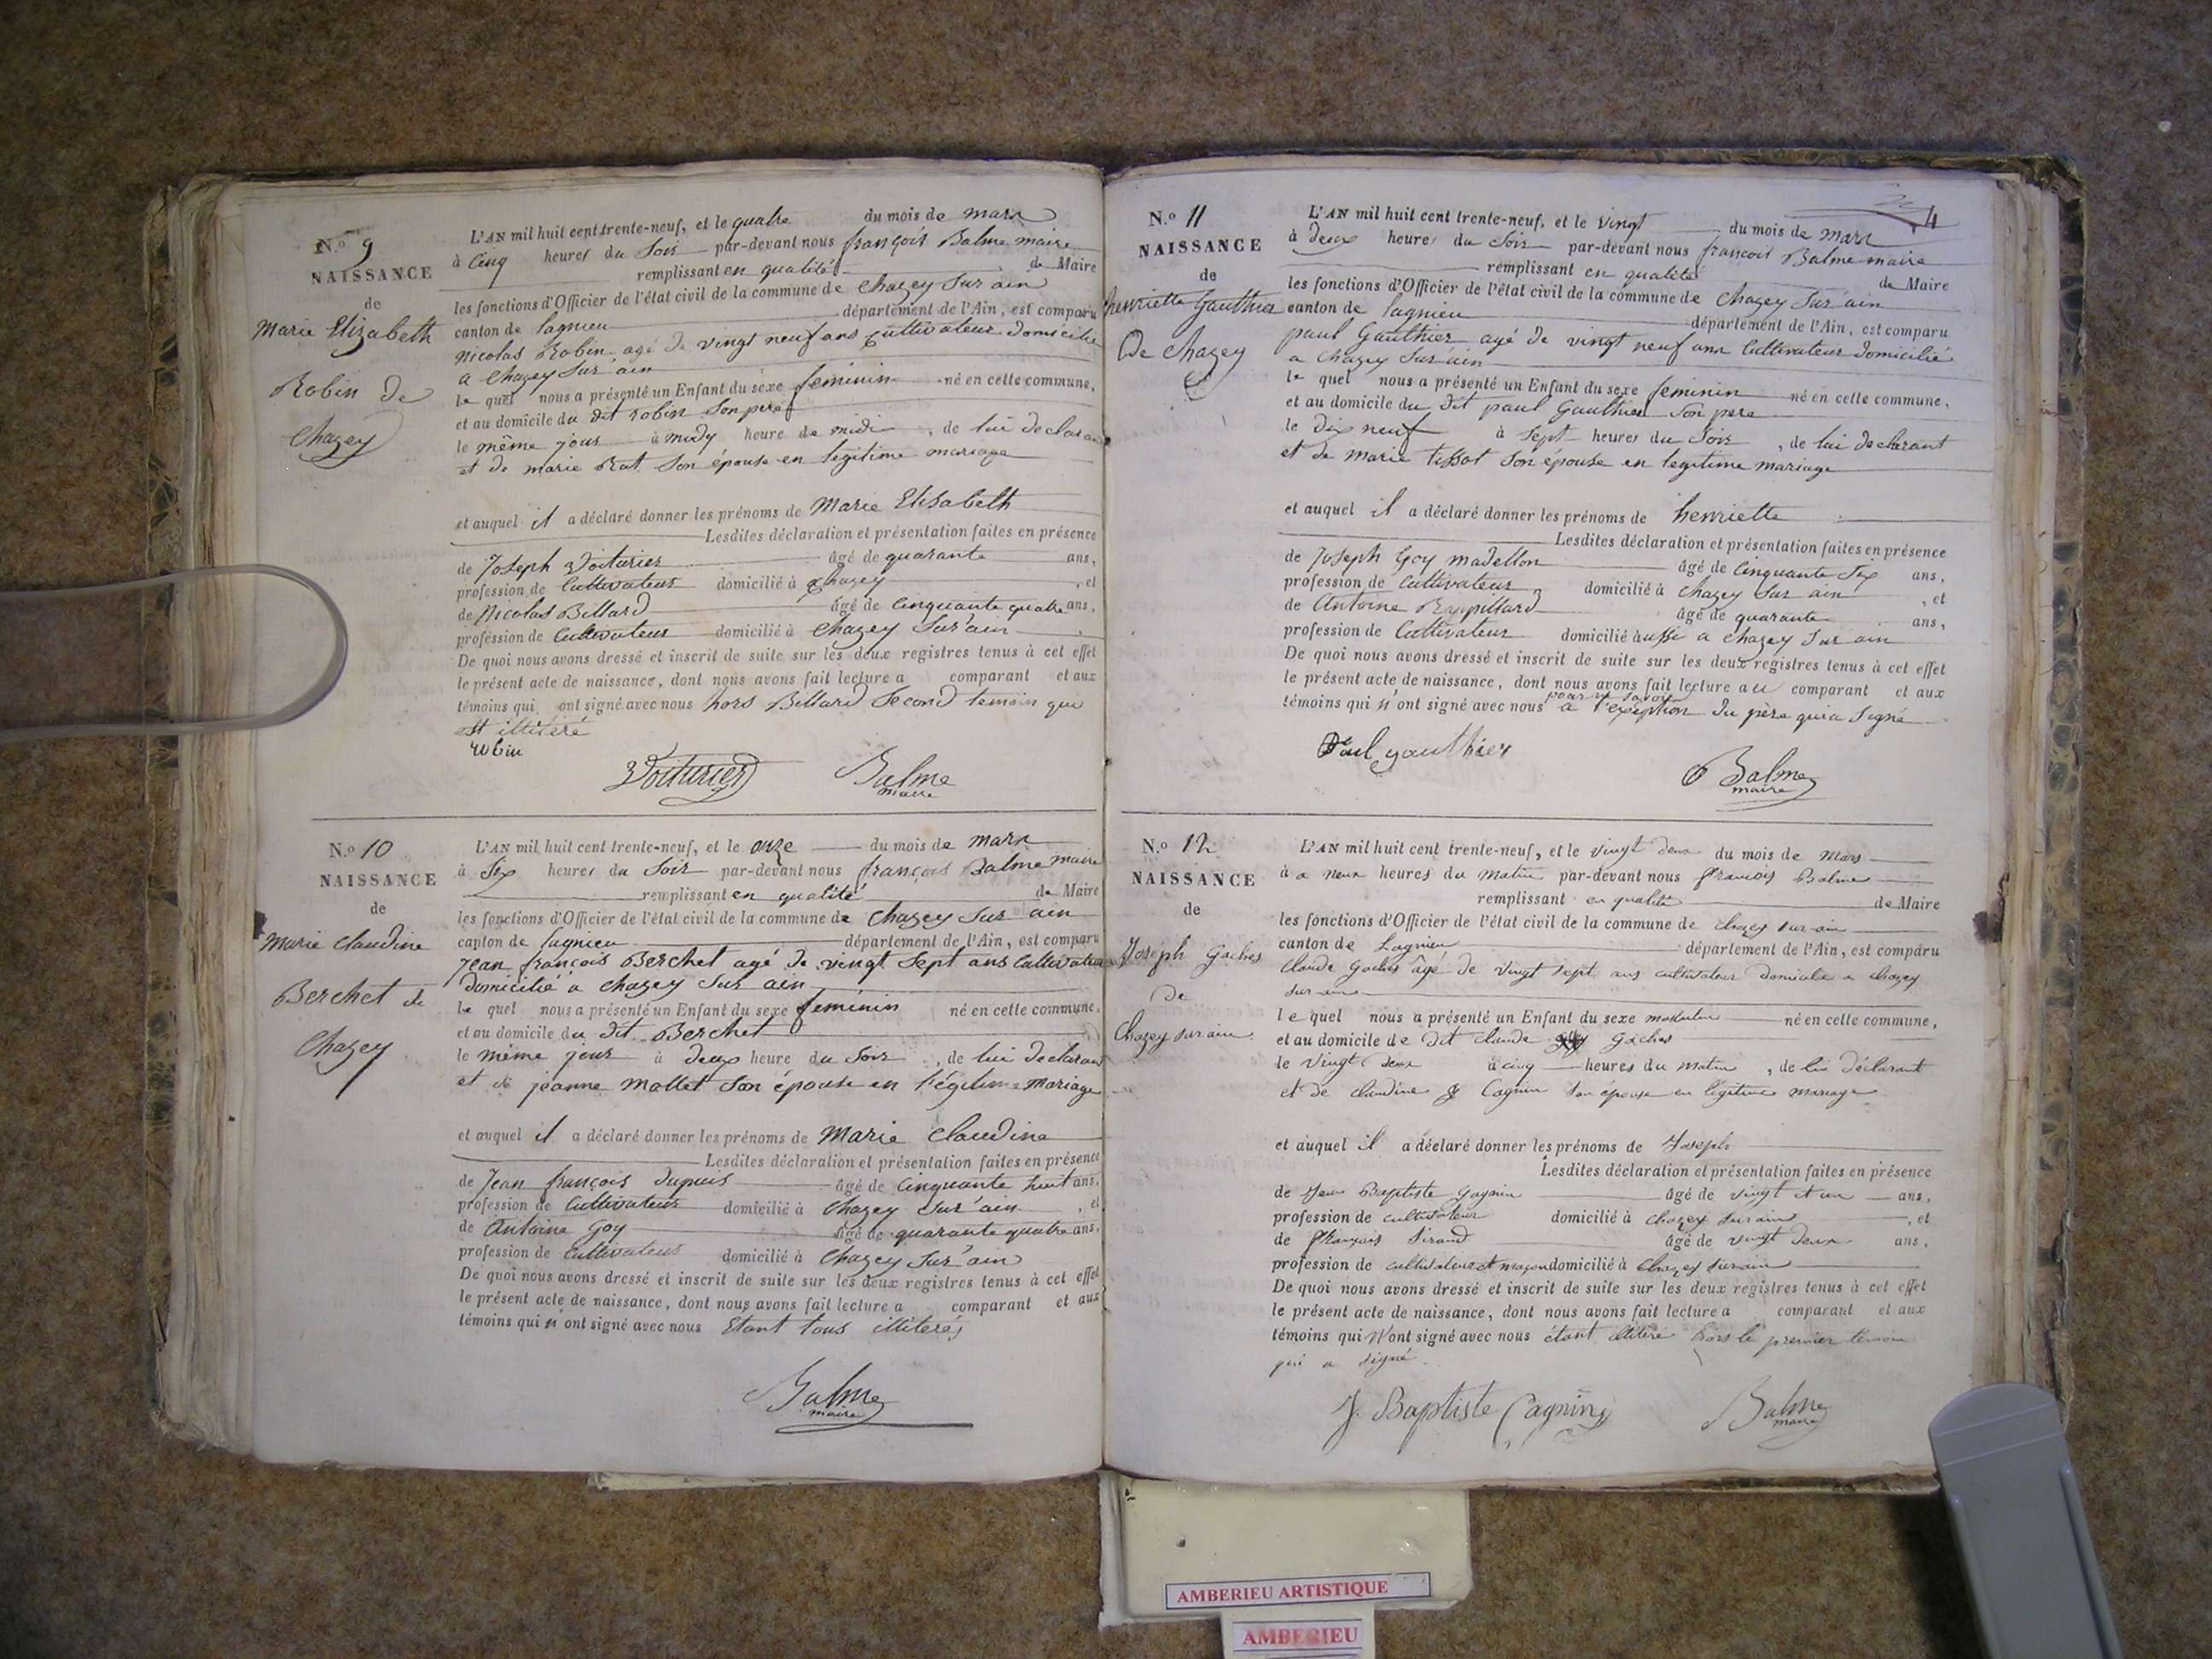 N.o 9
NAISSANCE
de
Marie Elizabeth
Robin de
Chazey
L'AN mil huit cent trente-neuf, et le quatre du mois de mars
à Cinq heures du Soir par-devant nous françois Balme maire
remplissant en qualité de Maire
les fonctions d'Officier de l'état civil de la commune de Chazey Sur ain
canton de lagnieu département de l'Ain, est comparu
nicolas Robin agé de vingt neuf ans Cultivateur domicilié
a Chazey Sur ain
le quel nous a présenté un Enfant du sexe feminin né en cette commune,
et au domicile du dit robin Son pere
le même jour à midy heure de midi, de lui declarant
et de marie Rat Son épouse en legitime mariage
et auquel il a déclaré donner les prénoms de Marie Elisabeth
Lesdites déclaration et présentation faites en présence
de Joseph Voiturier âgé de quarante ans,
profession de Cultivateur domicilié à Chazey, et
de Nicolas Billard âgé de Cinquante quatre ans,
profession de Cultivateur domicilié à Chazey Sur ain
De quoi nous avons dressé et inscrit de suite sur les deux registres tenus à cet effet
le présent acte de naissance, dont nous avons fait lecture a comparant et aux
témoins qui ont signé avec nous hors Billard Second temoin qui
est illitéré
Voiturier Balme
maire
N.o 10
NAISSANCE
de
Marie Claudine
Berchet de
Chazey
L'AN mil huit cent trente-neuf, et le onze du mois de mars
à Six heures du Soir par-devant nous françois Balme maire
remplissant en qualité de Maire
les fonctions d'Officier de l'état civil de la commune de Chazey Sur ain
canton de lagnieu département de l'Ain, est comparu
Jean françois Berchet agé de vingt Sept ans Cultivateur
domicilié a Chazey Sur ain
le quel nous a présenté un Enfant du sexe feminin né en cette commune,
et au domicile du dit Berchet
le même jour à deux heure du Soir, de lui declarant
et de jeanne Mollet Son épouse en légitime Mariage
et auquel il a déclaré donner les prénoms de Marie Claudine
Lesdites déclaration et présentation faites en présence
de Jean françois dupuis âgé de Cinquante huit ans,
profession de Cultivateur domicilié à Chazey Sur ain, et
de Antoine Goy âgé de quarante quatre ans,
profession de Cultivateur domicilié à Chazey Sur ain
De quoi nous avons dressé et inscrit de suite sur les deux registres tenus à cet effet
le présent acte de naissance, dont nous avons fait lecture a comparant et aux
témoins qui n'ont signé avec nous Etant tous illiterés
Balme
maire
4
N.o 11
NAISSANCE
de
henriette Gauthier
De Chazey
L'AN mil huit cent trente-neuf, et le Vingt du mois de mars
à deux heures du Soir par-devant nous françois Balme maire
remplissant en qualité de Maire
les fonctions d'Officier de l'état civil de la commune de Chazey Sur ain
canton de lagnieu département de l'Ain, est comparu
paul Gauthier agé de vingt neuf ans Cultivateur domicilié
a Chazey Sur ain
le quel nous a présenté un Enfant du sexe feminin né en cette commune,
et au domicile du dit paul Gauthier Son pere
le dix neuf à Sept heures du Soir, de lui declarant
et de marie tissot Son épouse en legitime mariage
et auquel il a déclaré donner les prénoms de henriette
Lesdites déclaration et présentation faites en présence
de Joseph Goy madellon âgé de Cinquante Six ans,
profession de Cultivateur domicilié à Chazey Sur ain, et
de Antoine Rappillard âgé de quarante ans,
profession de Cultivateur domicilié aussi a Chazey Sur ain
De quoi nous avons dressé et inscrit de suite sur les deux registres tenus à cet effet
le présent acte de naissance, dont nous avons fait lecture au comparant et aux
pour ne savoir
témoins qui n'ont signé avec nous a l'exeption du père qui a Signé
Paul gauthier
Balme
maire
N.o 12
NAISSANCE
de
Joseph Gaches
De
Chazey sur ain
L'AN mil huit cent trente-neuf, et le vingt deux du mois de Mars
à a neux heures du matin par-devant nous François Balme
remplissant en qualité de Maire
les fonctions d'Officier de l'état civil de la commune de Chazey sur ain
canton de Lagnieu département de l'Ain, est comparu
Claude Gaches âgé de vingt sept ans cultivateur domicilié a Chazey
sur ain
le quel nous a présenté un Enfant du sexe masculin né en cette commune,
et au domicile de dit Claude Gaches
le Vingt deux à cinq heures du matin, de lui déclarant
et de Claudine Cagnin son épouse en légitime mariage
et auquel il a déclaré donner les prénoms de Joseph
Lesdites déclaration et présentation faites en présence
de Jean Baptiste Cagnin âgé de vingt et un ans,
profession de cultivateur domicilié à Chazey sur ain, et
de François Siraud âgé de vingt deux ans,
profession de cultivateur et maçon domicilié à Chazey sur ain
De quoi nous avons dressé et inscrit de suite sur les deux registres tenus à cet effet
le présent acte de naissance, dont nous avons fait lecture a comparant et aux
témoins qui N'ont signé avec nous étant illitéré hors le premier témoin
qui a signé
J. Baptiste Cagnin Balme
maire
AMBERIEU ARTISTIQUE
AMBERIEU